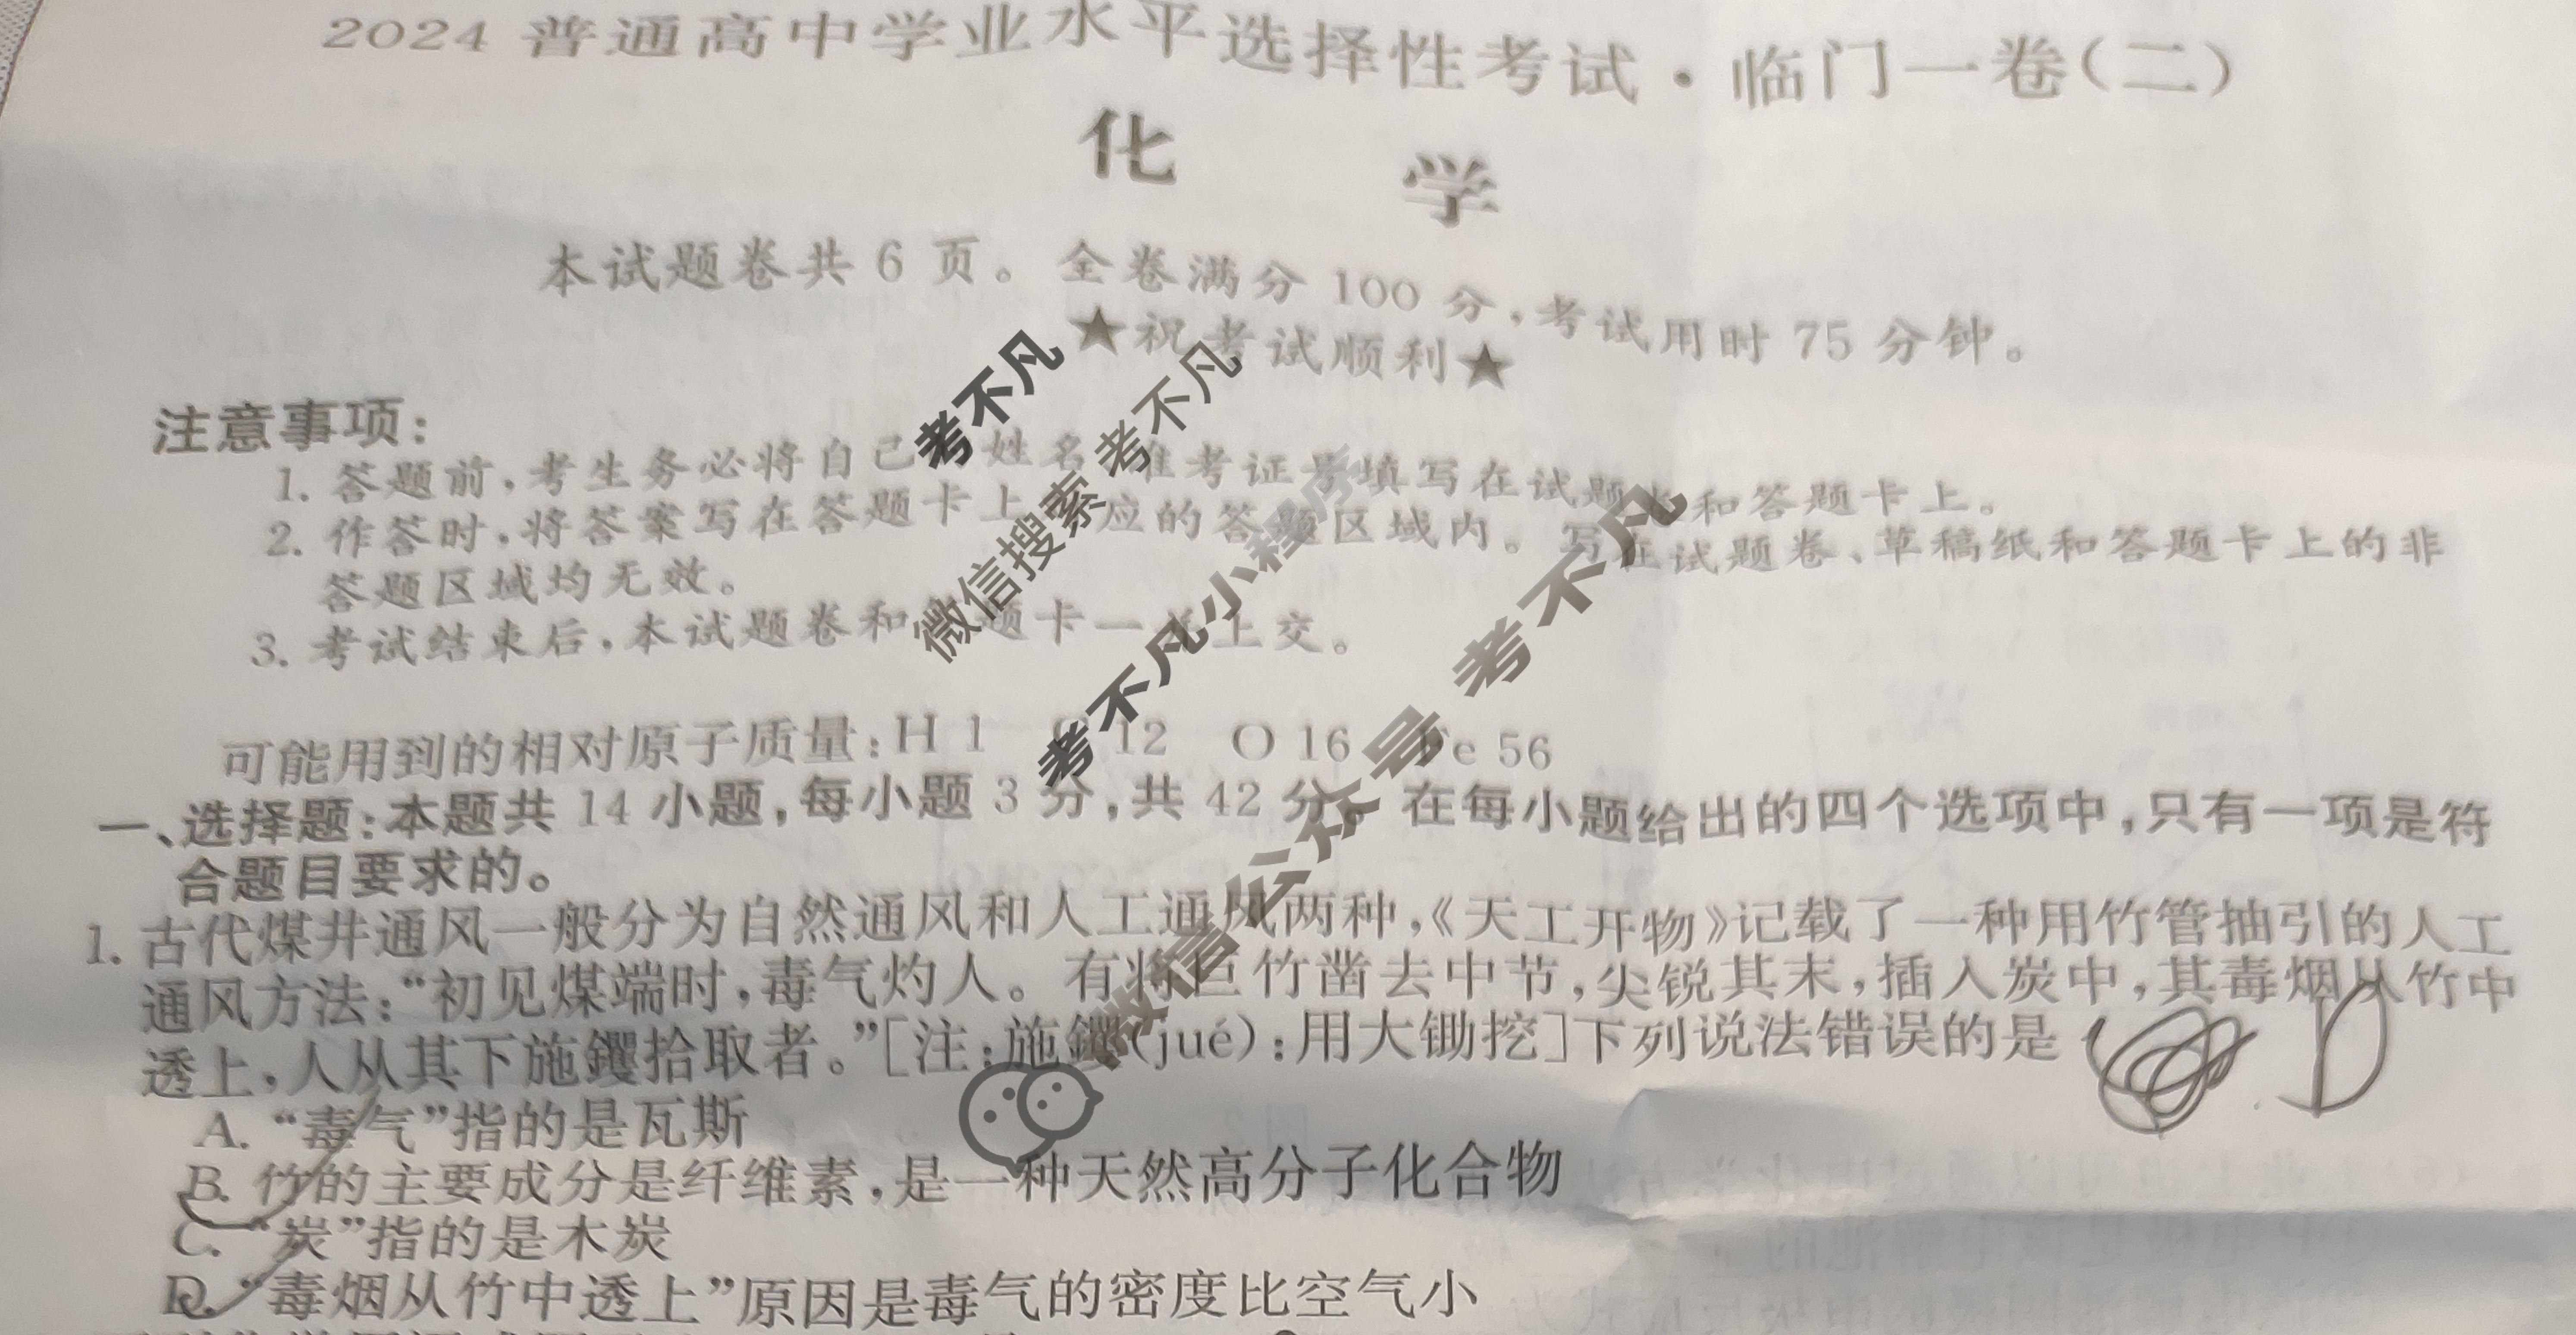 2024 普通高中学业水平选择性考试·临门一卷(二)
化 学
本试题卷共 6 页。全卷满分 100 分,考试用时 75 分钟。
★祝考试顺利★
注意事项:
1. 答题前,考生务必将自己 姓名 准考证号填写在试题卷和答题卡上。
2. 作答时,将答案写在答题卡上 应的答题区域内。写在试题卷、草稿纸和答题卡上的非
答题区域均无效。
3. 考试结束后,本试题卷和答题卡一并上交。
可能用到的相对原子质量:H 1 C 12 O 16 Fe 56
一、选择题:本题共 14 小题,每小题 3 分,共 42 分。在每小题给出的四个选项中,只有一项是符
合题目要求的。
1. 古代煤井通风一般分为自然通风和人工通风两种,《天工开物》记载了一种用竹管抽引的人工
通风方法:“初见煤端时,毒气灼人。有将巨竹凿去中节,尖锐其末,插入炭中,其毒烟从竹中
透上,人从其下施钁拾取者。”[注:施钁(jué):用大锄挖]下列说法错误的是
D
A. “毒气”指的是瓦斯
B. 竹的主要成分是纤维素,是一种天然高分子化合物
C. “炭”指的是木炭
D. “毒烟从竹中透上”原因是毒气的密度比空气小
考不凡
微信搜索 考不凡
考不凡小程序
微信公众号 考不凡